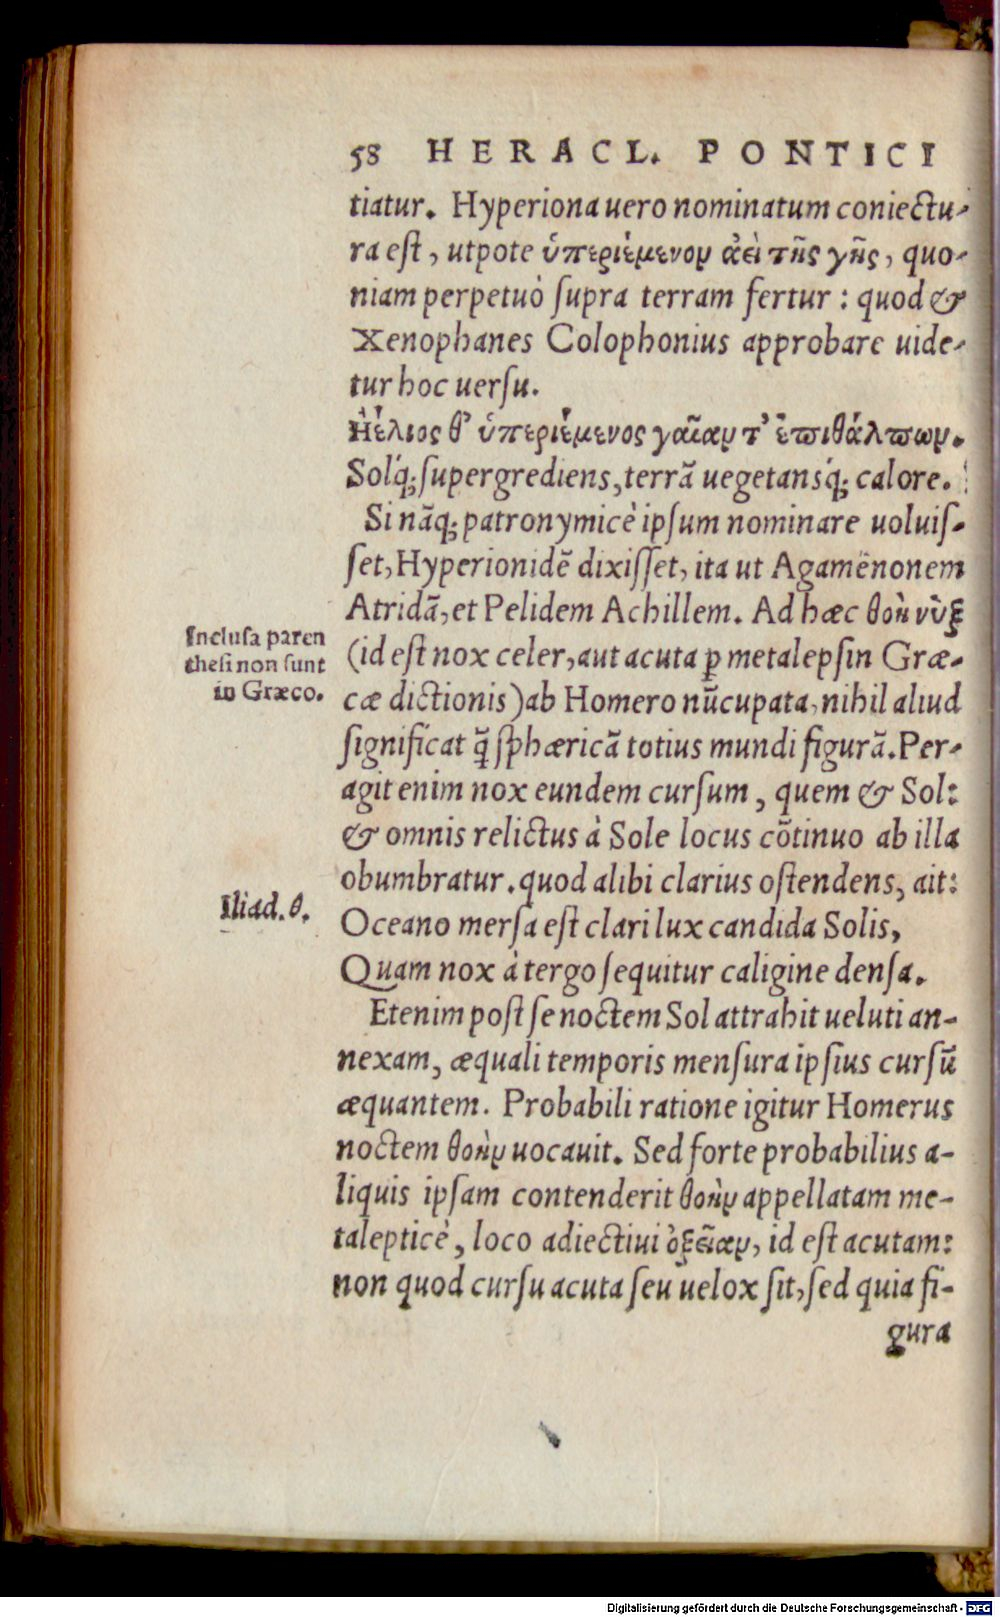 58 HERACL. PONTICI
tiatur. Hyperiona uero nominatum coniectu-
ra est, utpote ὑπεριέμενον ἀεὶ τῆς γῆς, quo-
niam perpetuò supra terram fertur: quod &
Xenophanes Colophonius approbare uide-
tur hoc uersu.
Ἠέλιος θ' ὑπεριέμενος γαῖαν τ' ἐπιθάλπων.
Solq́; supergrediens, terrã uegetansq́; calore.
Si nãq; patronymicè ipsum nominare uoluis-
set, Hyperionidẽ dixisset, ita ut Agamẽnonem
Atridã, et Pelidem Achillem. Ad hæc θοὴ νὺξ
Inclusa paren
thesi non sunt
in Græco.
(id est nox celer, aut acuta ꝑ metalepsin Græ-
cæ dictionis) ab Homero nũcupata, nihil aliud
significat q̃ sphæricã totius mundi figurã. Per-
agit enim nox eundem cursum, quem & Sol:
& omnis relictus à Sole locus cõtinuo ab illa
obumbratur. quod alibi clarius ostendens, ait:
Iliad. θ.
Oceano mersa est clari lux candida Solis,
Quam nox à tergo sequitur caligine densa.
Etenim post se noctem Sol attrahit ueluti an-
nexam, æquali temporis mensura ipsius cursũ
æquantem. Probabili ratione igitur Homerus
noctem θοὴν uocauit. Sed forte probabilius a-
liquis ipsam contenderit θοὴν appellatam me-
talepticè, loco adiectiui ὀξεῖαν, id est acutam:
non quod cursu acuta seu uelox sit, sed quia fi-
gura
Digitalisierung gefördert durch die Deutsche Forschungsgemeinschaft - DFG